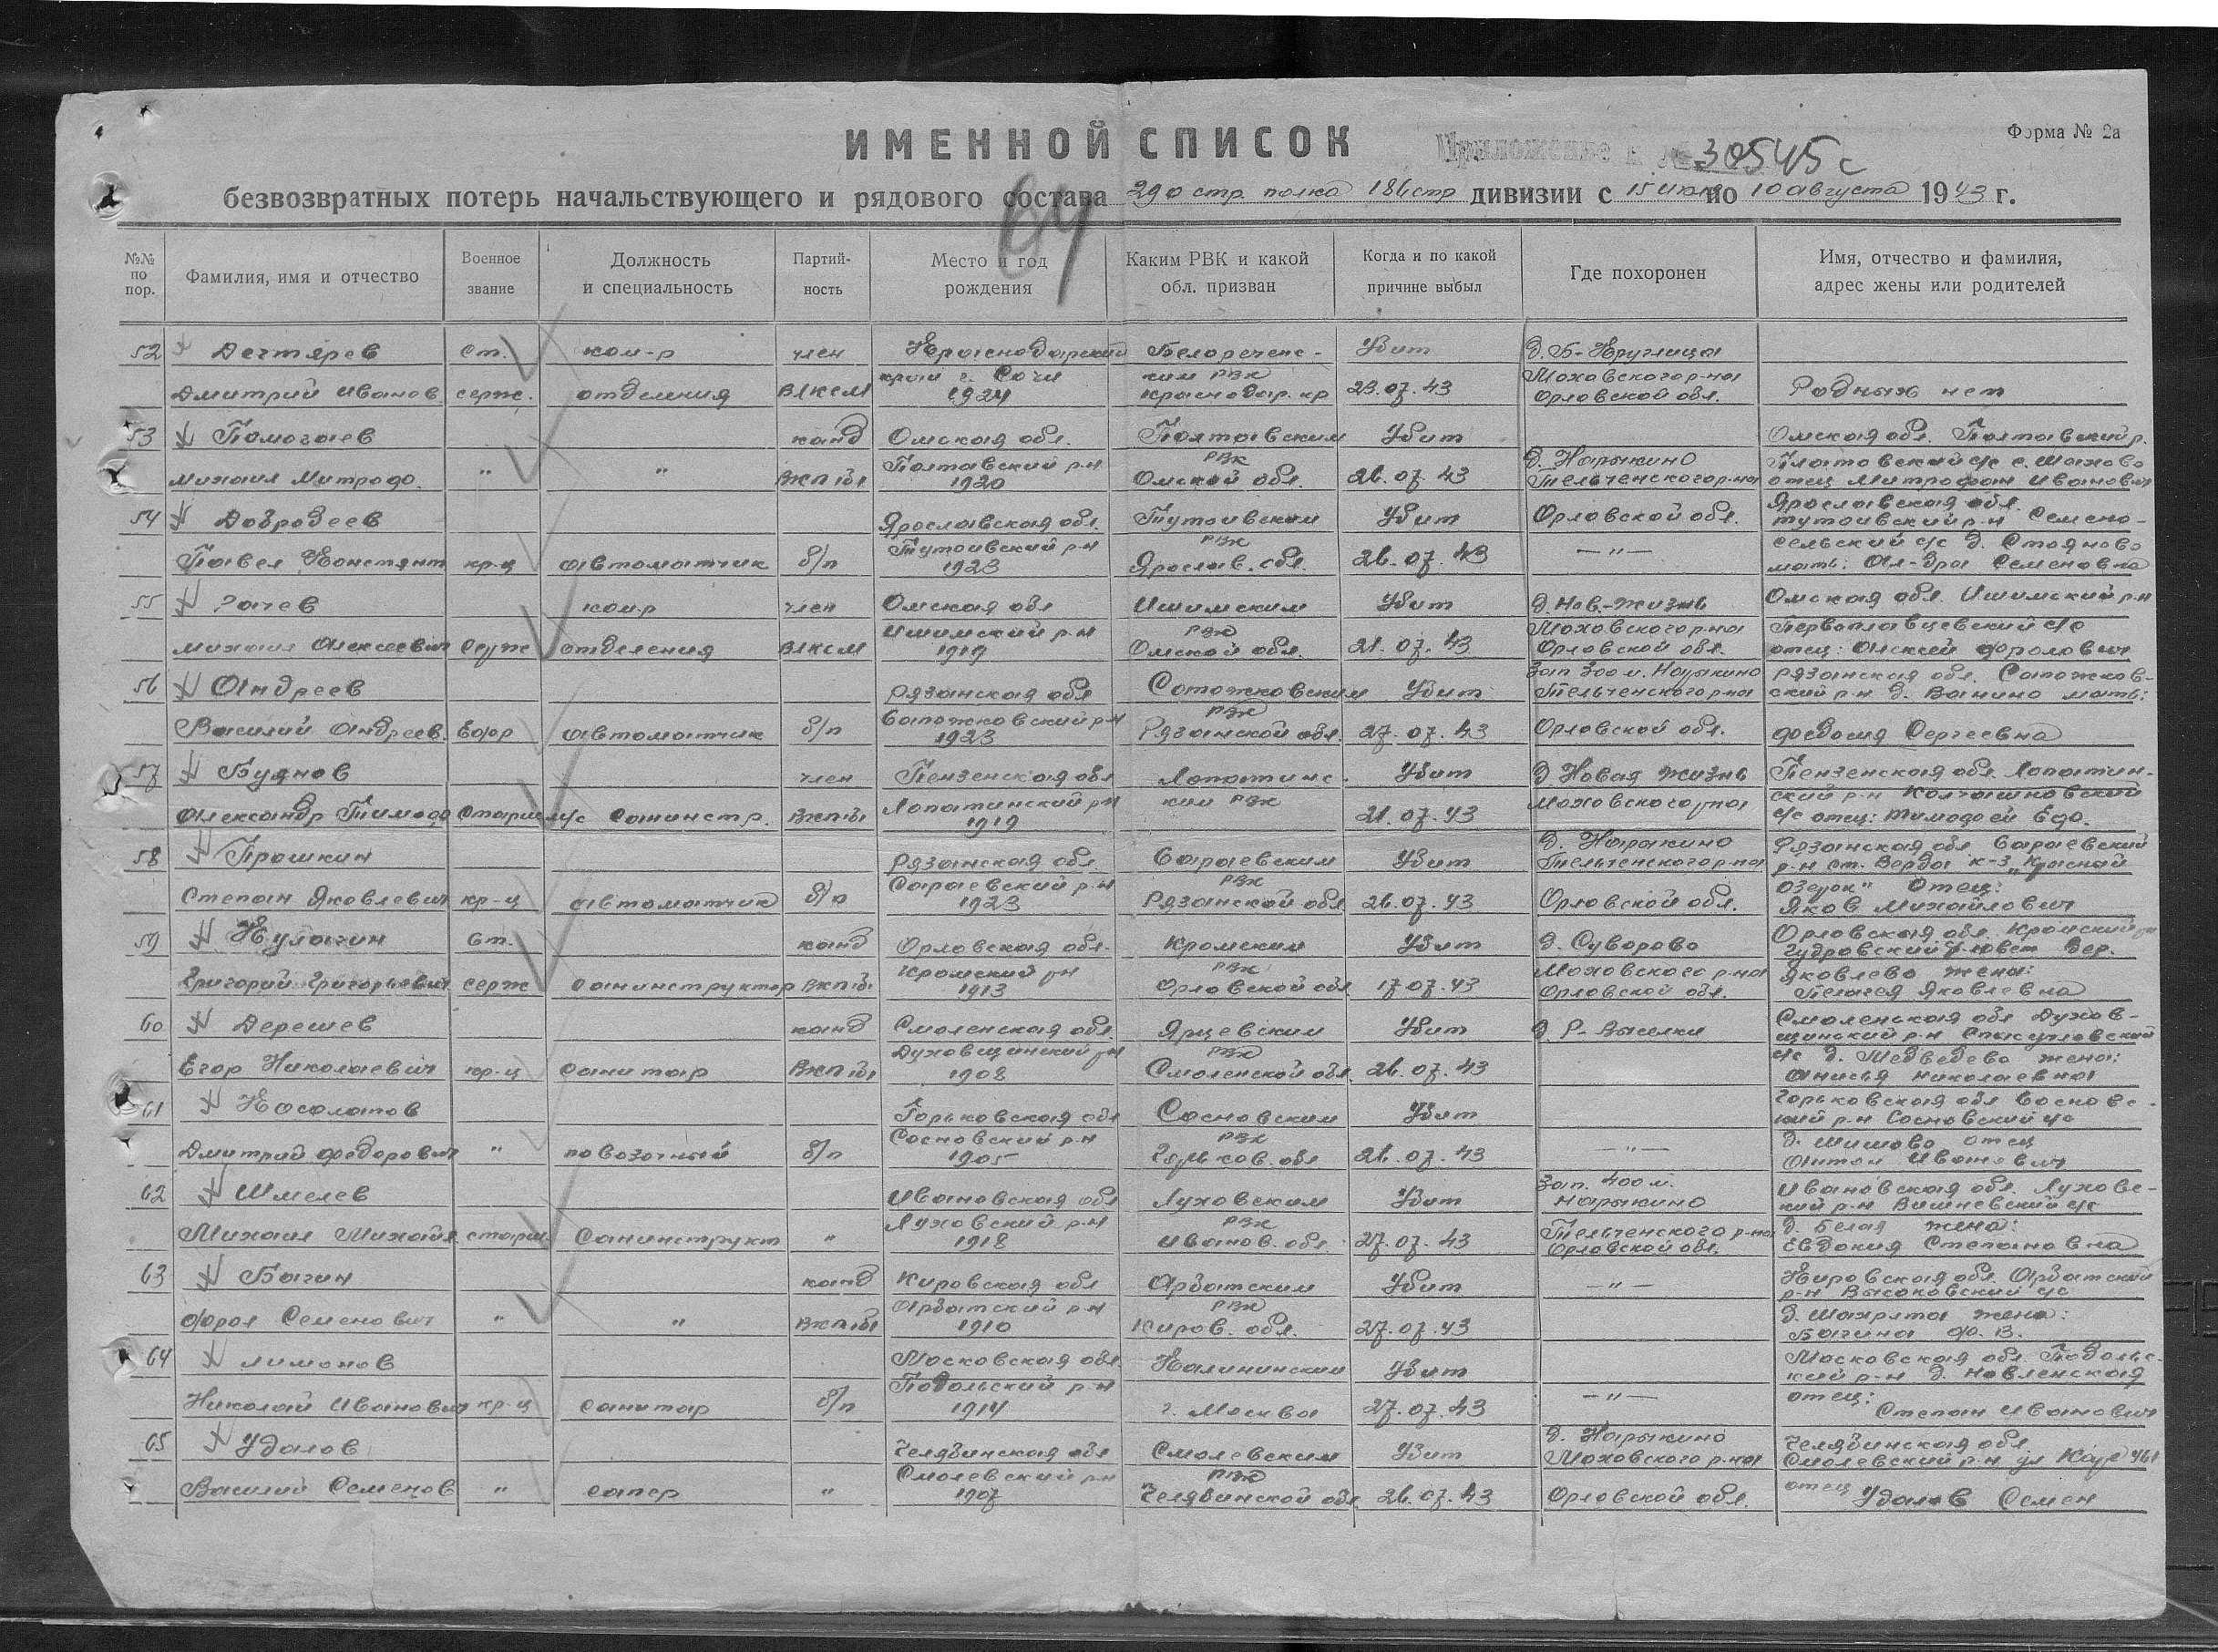 ИМЕННОЙ СПИСОК
Приложение к № 30545с
Форма № 2а
безвозвратных потерь начальствующего и рядового состава 290 стр полка 186 стр дивизии с 15 июля по 10 августа 1943 г.
64
№№ по пор. Фамилия, имя и отчество Военное звание Должность и специальность Партий-ность Место и год рождения Каким РВК и какой обл. призван Когда и по какой причине выбыл Где похоронен Имя, отчество и фамилия, адрес жены или родителей
52 Дегтярев ст. ком-р член Краснодарский Белореченс- Убит д. Б-Круглица
край г. Сочи ким РВК Моховского р-на
Дмитрий Иванов серж. отделения ВЛКСМ 1924 Краснодар. кр 23.07.43 Орловской обл. Родных нет
53 Помогаев канд Омская обл. Полтавским Убит Омская обл. Полтавский р.
Полтавский р-н РВК д. Нарыкино Платовский с/с с.
Михаил Митрофо. " " ВКП(б) 1920 Омской обл. 26.07.43 Тельченского р-на отец Митрофан Иванович
54 Добродеев Ярославская обл. Тутаевским Убит Орловской обл. Ярославская обл.
Тутаевский р-н Семено-
Тутаевский р-н РВК сельский с/с д. Стояново
Павел Констянт кр-ц автоматчик б/п 1923 Ярослав. обл. 26.07.43 —"— мать: Ал-дра Семеновна
55 Рачев ком-р член Омская обл Ишимским Убит д. Нов.-Жизнь Омская обл. Ишимский р-н
Ишимский р-н РВК Моховского р-на с/с
Михаил Алексеевич серж отделения ВЛКСМ 1919 Омской обл. 21.07.43 Орловской обл. отец: Алексей Фролович
56 Андреев Рязанская обл Сапожковским Убит Зап 300 м. Нарыкино Рязанская обл. Сапожков-
Тельченского р-на ский р-н д. Ванино мать:
Сапожковский р-н РВК
Василий Андреев. Ефр автоматчик б/п 1923 Рязанской обл. 27.07.43 Орловской обл. Федосия Сергеевна
57 Буянов член Пензенская обл Лопатинс- Убит д. Новая Жизнь Пензенская обл. Лопатин-
Лопатинский р-н ким РВК Моховского р-на ский р-н
Александр Тимофе Старш м/с Санинстр. ВКП(б) 1919 21.07.43 с/с отец: Тимофей Ефр.
58 Прошкин Рязанская обл. Сараевским Убит д. Нарыкино Рязанская обл. Сараевский
Тельченского р-на р-н ст. Верда к-з "Красный
Сараевский р-н РВК Озерок" Отец:
Степан Яковлевич кр-ц автоматчик б/п 1923 Рязанской обл 26.07.43 Орловской обл. Яков Михайлович
59 Кулагин Ст. канд Орловская обл. Кромским Убит д. Суворово Орловская обл. Кромский р-н
Кромский р-н РВК Моховского р-на Яковлево жена:
Григорий Григорьевич серж Санинструктор ВКП(б) 1913 Орловской обл 17.07.43 Орловской обл. Пелагея Яковлевна
60 Дерешев канд Смоленская обл. Ярцевским Убит д. Р-Выселки Смоленская обл Духов-
щинский р-н
Духовщинский р-н РВК с/с д. Медведево жена:
Егор Николаевич кр-ц санитар ВКП(б) 1908 Смоленской обл. 26.07.43 Анисья Николаевна
61 Косолапов Горьковская обл Сосновским Убит Горьковская обл Сосновс-
кий р-н Сосновский с/с
Сосновский р-н РВК д. Шишово отец
Дмитрий Федорович " повозочный б/п 1905 Горьков. обл 26.07.43 —"— Антон Иванович
62 Шмелев Ивановская обл Луховским Убит Зап. 400 м. Нарыкино Ивановская обл. Луховс-
кий р-н Вишневский с/с
Луховский р-н РВК Тельченского р-на д. Белая жена:
Михаил Михайл. старш Санинструкт " 1918 Иванов. обл 27.07.43 Орловской обл. Евдокия Степановна
63 Багин канд Кировская обл Арбатским Убит —"— Кировская обл. Арбатский
р-н Высоковский с/с
Арбатский р-н РВК жена:
Фрол Семенович " " ВКП(б) 1910 Киров. обл. 27.07.43 Багина Ф. В.
64 Лимонов Московская обл. Калининским Убит Московская обл Подольс-
кий р-н д.
Подольский р-н отец:
Николай Иванович кр-ц санитар б/п 1914 г. Москва 27.07.43 —"— Степан Иванович
65 Удалов Челябинская обл Смолевским Убит д. Нарыкино Челябинская обл.
Моховского р-на Смолевский р-н ул
Смолевский р-н РВК
Василий Семенов " сапер " 1907 Челябинской обл 26.07.43 Орловской обл. отец Удалов Семен